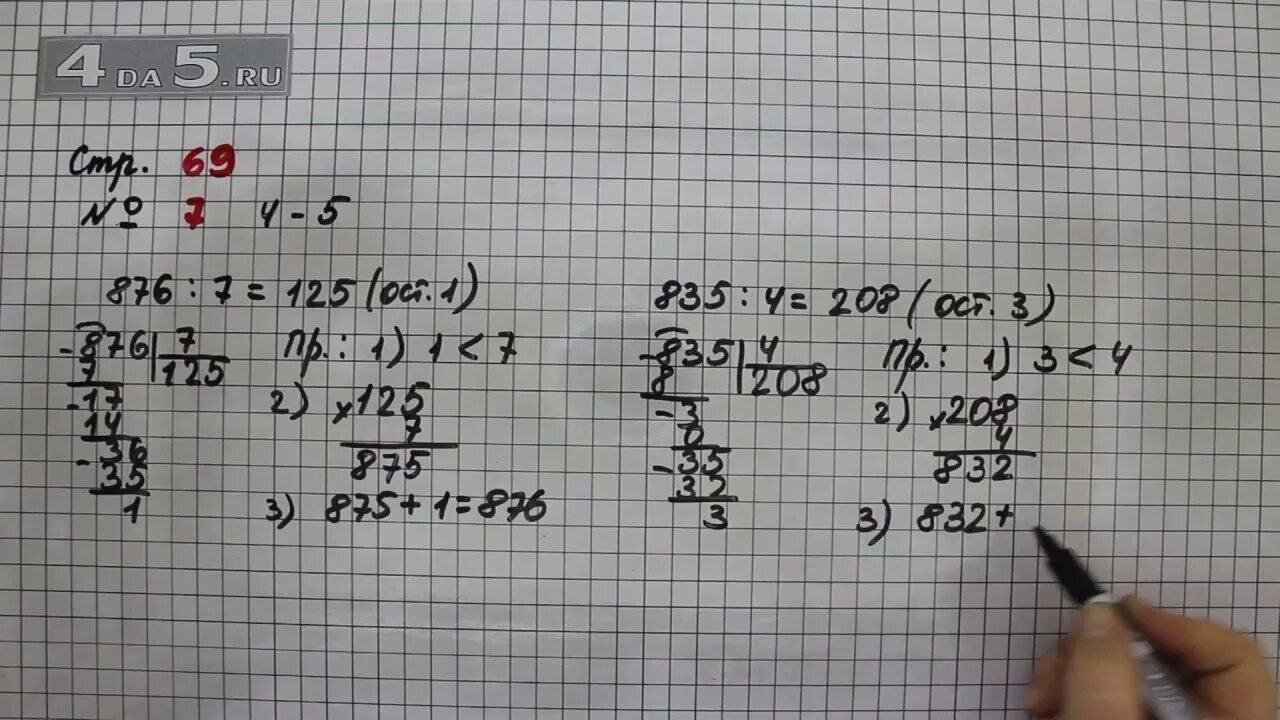 4DA5.RU
Стр. 69
№ 7 4-5
876 : 7 = 125 (ост. 1)
-876 | 7
7 | 125
-17
14
-36
35
1
Пр.: 1) 1 < 7
2) ×125
7
875
3) 875 + 1 = 876
835 : 4 = 208 (ост. 3)
-835 | 4
8 | 208
-3
0
-35
32
3
Пр.: 1) 3 < 4
2) ×208
4
832
3) 832 +